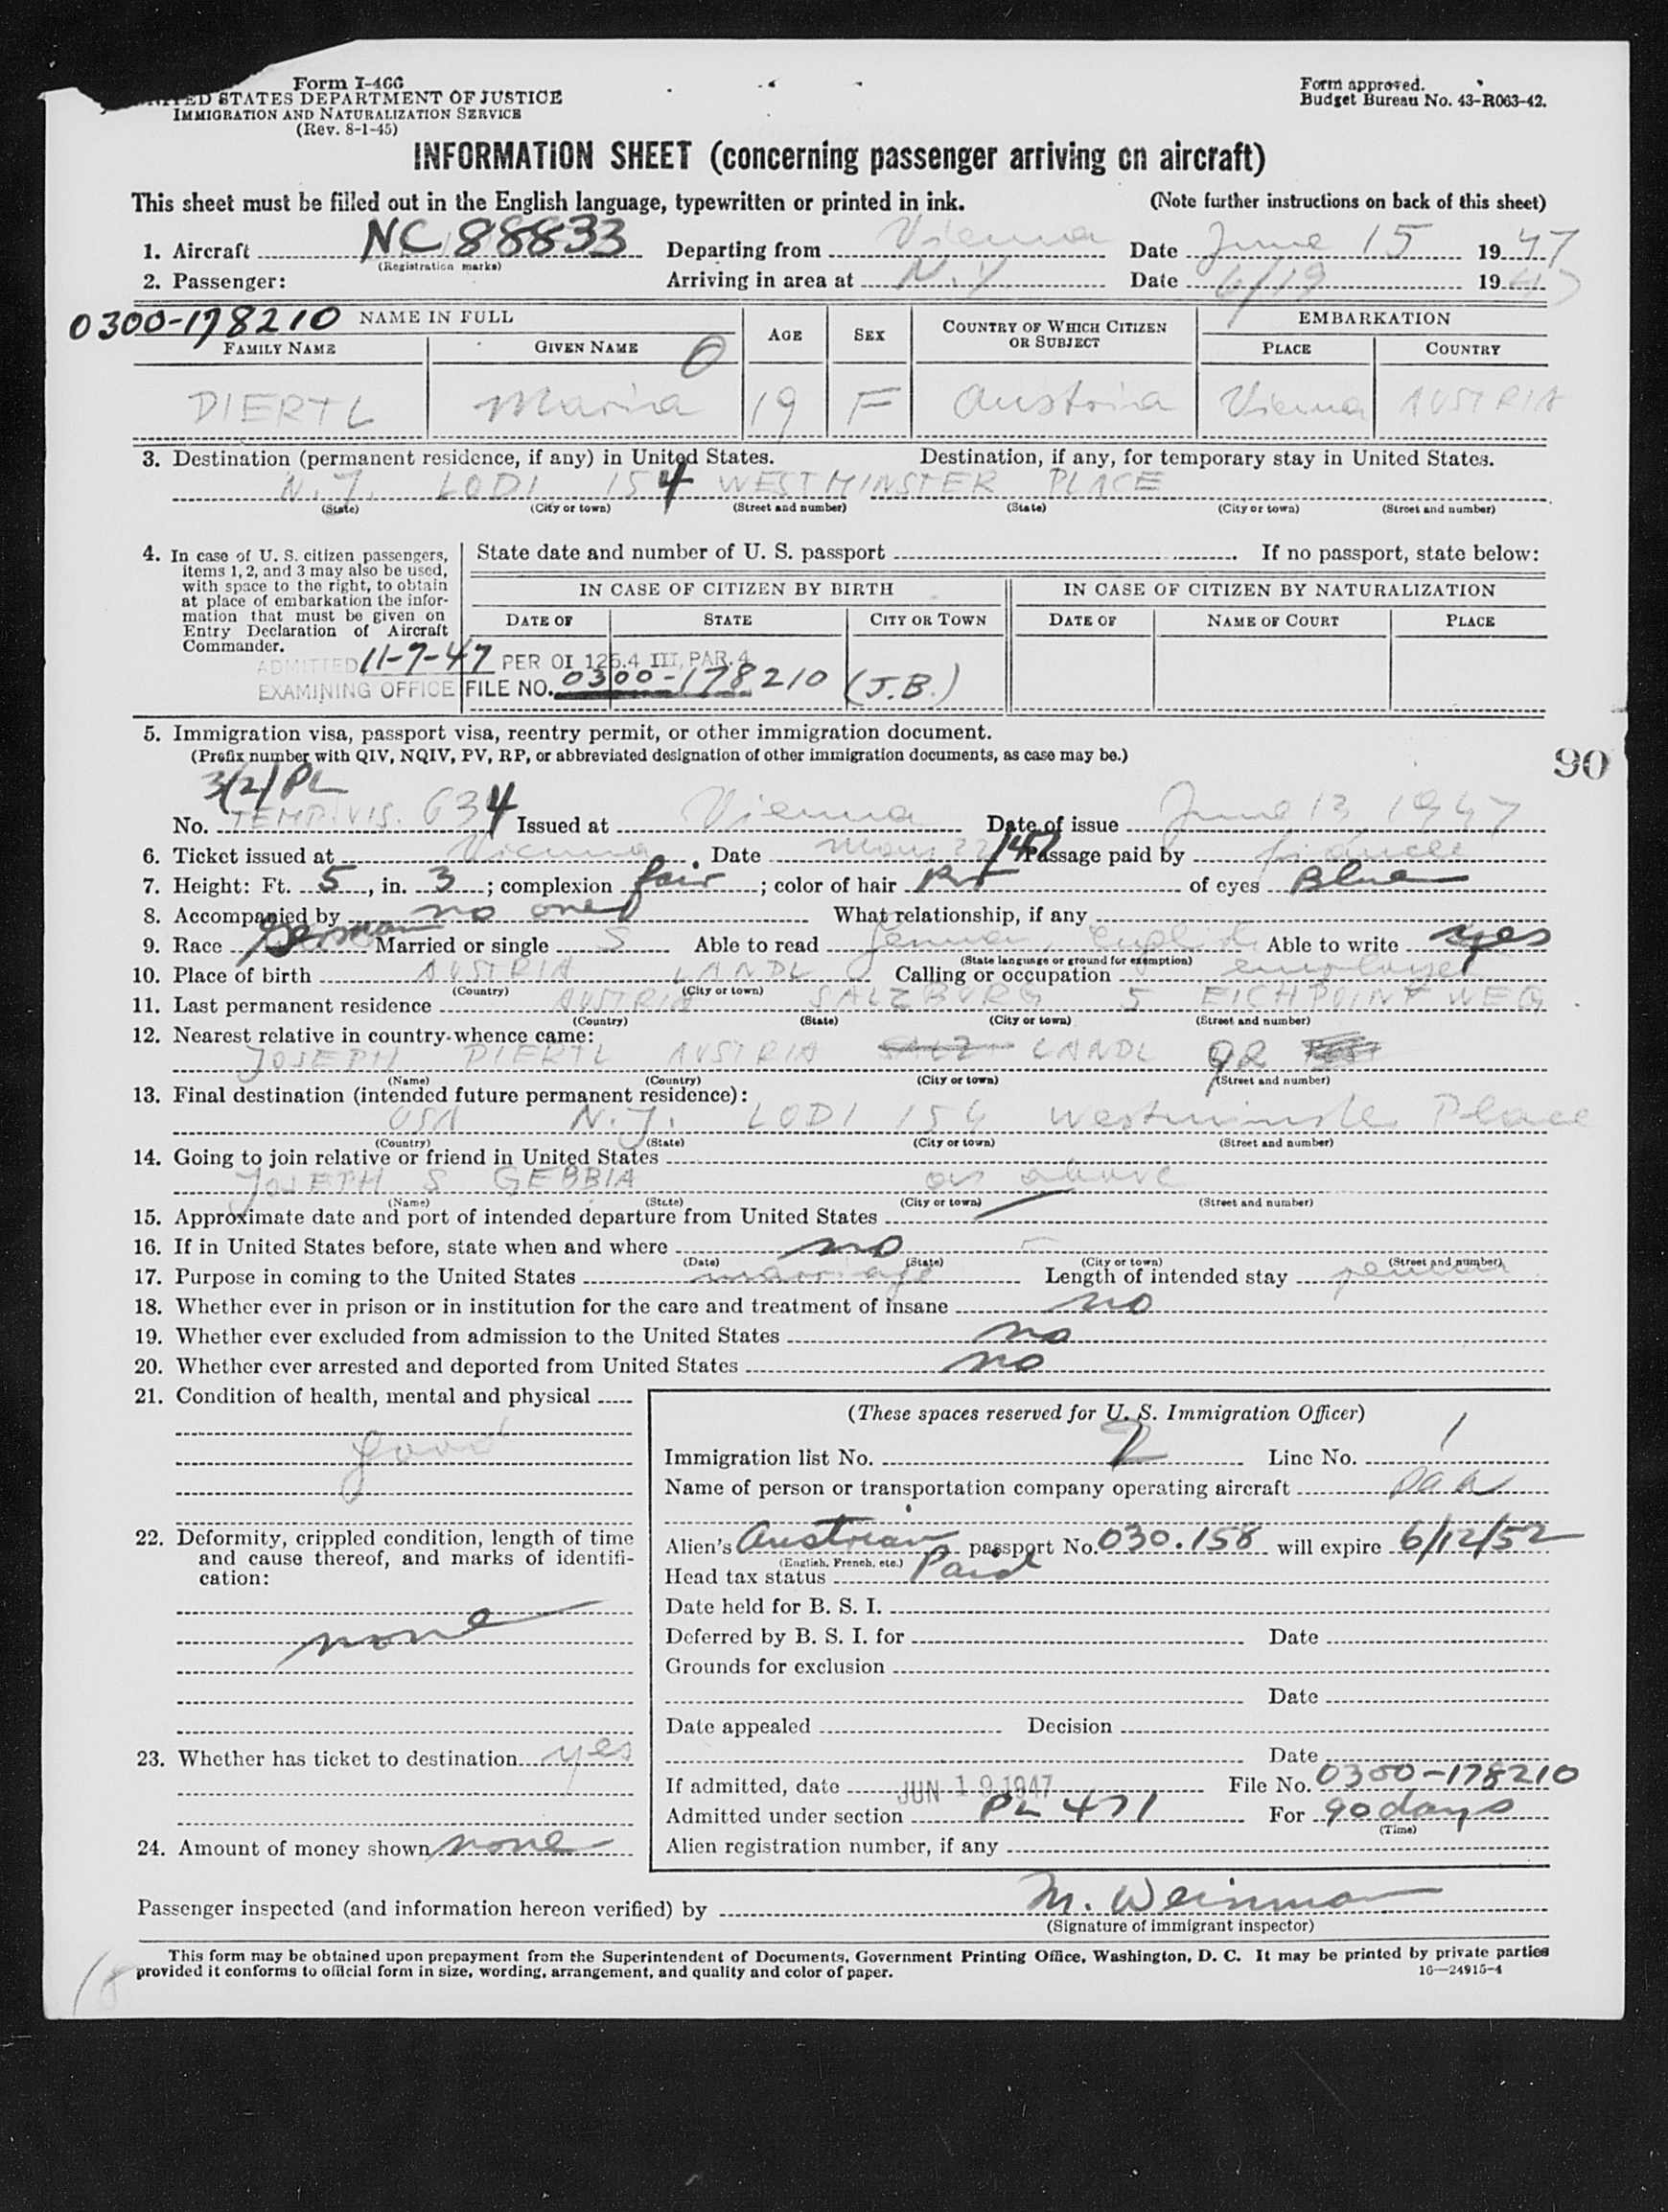 Form I-466
UNITED STATES DEPARTMENT OF JUSTICE
IMMIGRATION AND NATURALIZATION SERVICE
(Rev. 8-1-45)
Form approved.
Budget Bureau No. 43-R063-42.
INFORMATION SHEET (concerning passenger arriving on aircraft)
This sheet must be filled out in the English language, typewritten or printed in ink. (Note further instructions on back of this sheet)
1. Aircraft NC 88833 Departing from Vienna Date June 15 1947
(Registration marks)
2. Passenger: Arriving in area at N.Y Date 6/19 1947
0300-178210 NAME IN FULL AGE SEX COUNTRY OF WHICH CITIZEN OR SUBJECT EMBARKATION
FAMILY NAME GIVEN NAME PLACE COUNTRY
DIERTL Maria 19 F Austria Vienna AUSTRIA
3. Destination (permanent residence, if any) in United States. Destination, if any, for temporary stay in United States.
N.J. LODI 154 WESTMINSTER PLACE
(State) (City or town) (Street and number) (State) (City or town) (Street and number)
4. In case of U. S. citizen passengers, items 1, 2, and 3 may also be used, with space to the right, to obtain at place of embarkation the information that must be given on Entry Declaration of Aircraft Commander.
State date and number of U. S. passport . If no passport, state below:
IN CASE OF CITIZEN BY BIRTH IN CASE OF CITIZEN BY NATURALIZATION
DATE OF STATE CITY OR TOWN DATE OF NAME OF COURT PLACE
ADMITTED 11-7-47 PER OI 126.4 III, PAR. 4
EXAMINING OFFICE FILE NO. 0300-178210 (J.B.)
5. Immigration visa, passport visa, reentry permit, or other immigration document.
(Prefix number with QIV, NQIV, PV, RP, or abbreviated designation of other immigration documents, as case may be.)
90
3(2) PL
No. TEMP. VIS. 634 Issued at Vienna Date of issue June 13 1947
6. Ticket issued at Vienna Date May 22/47 Passage paid by
7. Height: Ft. 5, in. 3; complexion fair; color of hair of eyes Blue
8. Accompanied by no one What relationship, if any
9. Race German Married or single S Able to read German, English Able to write yes
(State language or ground for exemption)
10. Place of birth AUSTRIA LANDL Calling or occupation employee
(Country) (City or town)
11. Last permanent residence AUSTRIA SALZBURG 5 EICHPOINTWEG
(Country) (State) (City or town) (Street and number)
12. Nearest relative in country whence came:
JOSEPH DIERTL AUSTRIA LANDL
(Name) (Country) (City or town) (Street and number)
13. Final destination (intended future permanent residence):
USA N.J. LODI 154 Westminster Place
(Country) (State) (City or town) (Street and number)
14. Going to join relative or friend in United States
JOSEPH S GEBBIA as above
(Name) (State) (City or town) (Street and number)
15. Approximate date and port of intended departure from United States
16. If in United States before, state when and where no
(Date) (State) (City or town) (Street and number)
17. Purpose in coming to the United States marriage Length of intended stay
18. Whether ever in prison or in institution for the care and treatment of insane no
19. Whether ever excluded from admission to the United States no
20. Whether ever arrested and deported from United States no
21. Condition of health, mental and physical
good
22. Deformity, crippled condition, length of time and cause thereof, and marks of identification:
none
23. Whether has ticket to destination yes
24. Amount of money shown none
(These spaces reserved for U. S. Immigration Officer)
Immigration list No. 2 Line No. 1
Name of person or transportation company operating aircraft PAA
Alien's Austrian passport No. 030.158 will expire 6/12/52
(English, French, etc.)
Head tax status Paid
Date held for B. S. I.
Deferred by B. S. I. for Date
Grounds for exclusion
Date
Date appealed Decision
Date
If admitted, date JUN 19 1947 File No. 0300-178210
Admitted under section PL 471 For 90 days
(Time)
Alien registration number, if any
Passenger inspected (and information hereon verified) by M. Weinman
(Signature of immigrant inspector)
This form may be obtained upon prepayment from the Superintendent of Documents, Government Printing Office, Washington, D. C. It may be printed by private parties
provided it conforms to official form in size, wording, arrangement, and quality and color of paper. 16—24915-4